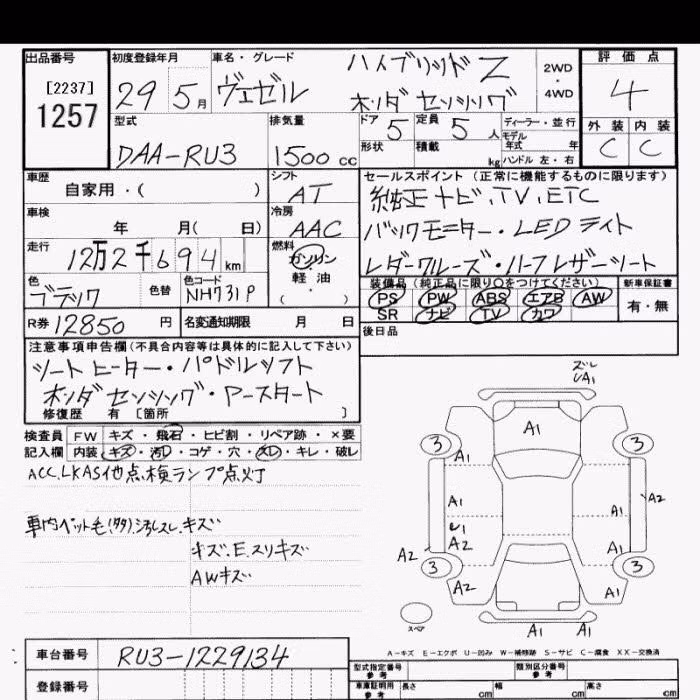 出品番号 初度登録年月 車名・グレード 評価点
[2237]
1257
29 5月 ヴェゼル ハイブリッドZ ホンダセンシング 2WD・4WD 4
型式 排気量 ドア 定員 ディーラー・並行 外装 内装
DAA-RU3 1500cc 5 5人 モデル年式 年 C C
形状 積載 kg ハンドル 左・右
車歴 シフト セールスポイント(正常に機能するものに限ります)
自家用・( ) AT 純正ナビ、TV、ETC
車検 冷房 バックモニター・LEDライト
年 月( 日) AAC レダークルーズ・ハーフレザーシート
走行 燃料
12万2千694km ガソリン・軽油・( )
色 色替 色コード 装備品(純正品に限り○をつけてください) 新車保証書
ブラック NH731P PS PW ABS エアB AW 有・無
SR ナビ TV カワ
R券 12850円 名変通知期限 月 日 後日品
注意事項申告欄(不具合内容等は具体的に記入して下さい)
シートヒーター・パドルシフト
ホンダセンシング・アースタート
修復歴 有 [箇所 ]
検査員 FW キズ・飛石・ヒビ割・リペア跡・×要
記入欄 内装 キズ・汚レ・コゲ・穴・スレ・キレ・破レ
ACC,LKAS他点検ランプ点灯
車内ペット毛(多)、汚レスレ、キズ
キズ.E.スリキズ
AWキズ
ズレ
UA1
A1
3 3
A1 A1
A1 A2
U1 A1
A2 A2 A1
3 3
A2 A1
スペア A1 A1
A-キズ E-エクボ U-凹み W-補修跡 S-サビ C-腐食 XX-交換済
車台番号 RU3-1229134
登録番号
型式指定番号 参考 類別区分番号 参考
車庫証明用 参考 長さ cm 幅 cm 高さ cm